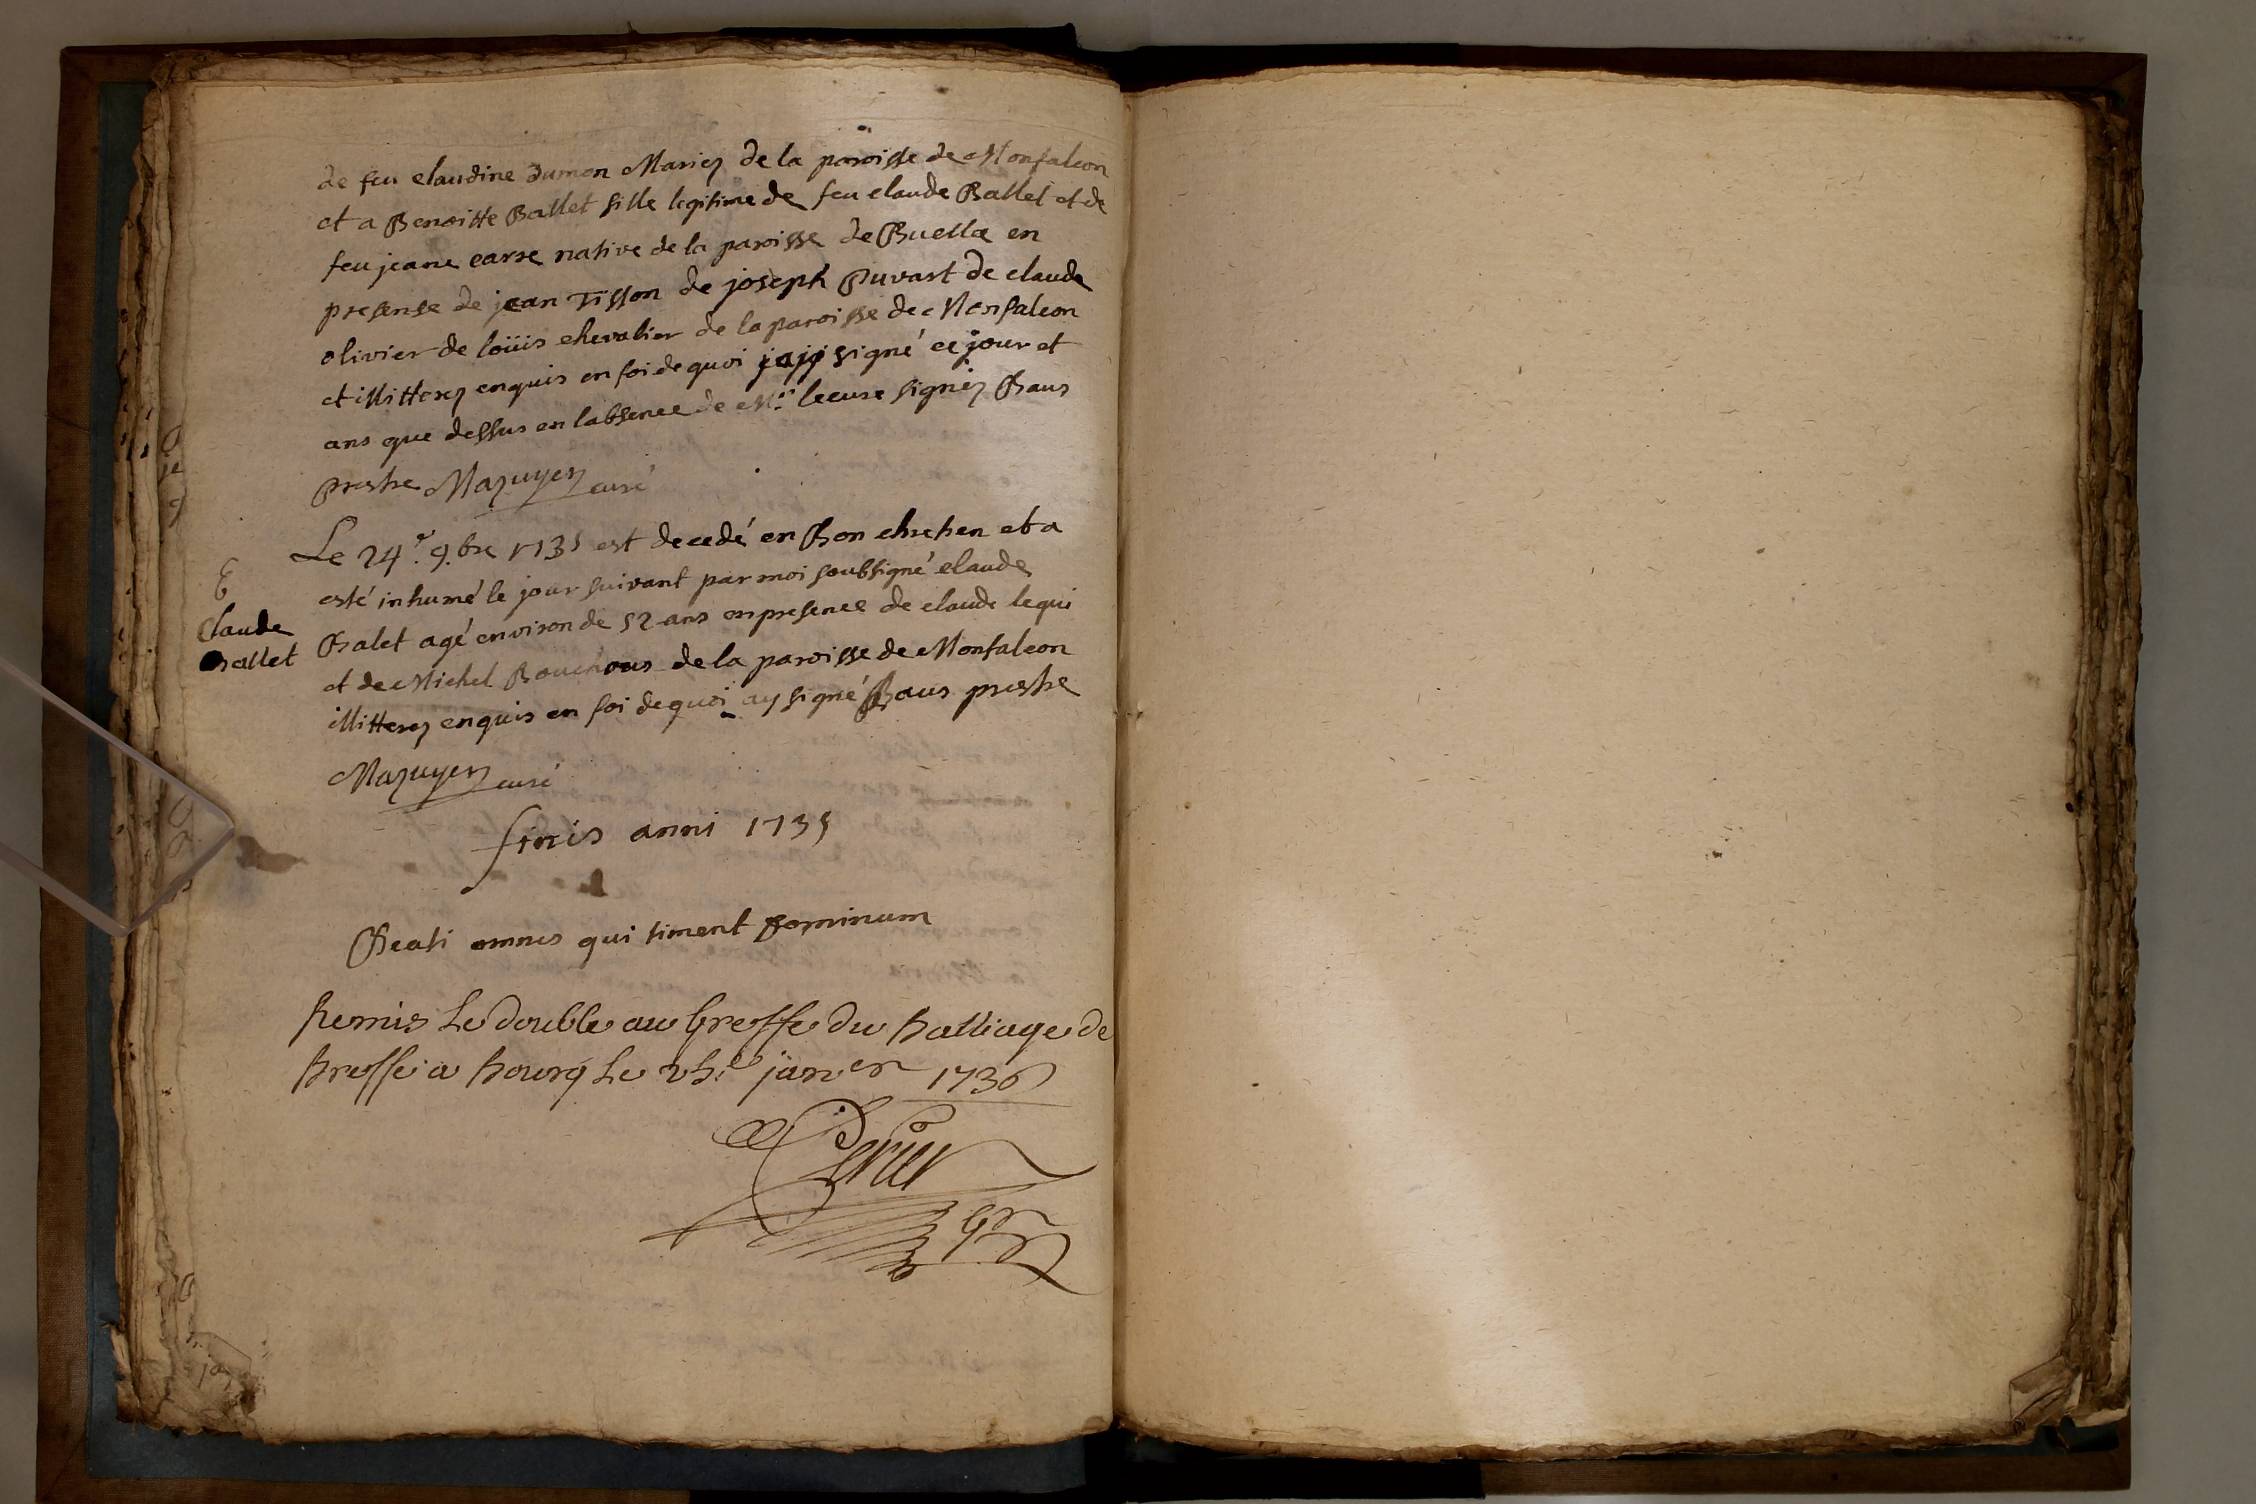 de feu claudine dumon Mariez de la paroisse de Monfalcon
et a Benoitte Ballet fille legitime de feu claude Ballet et de
feu jeane carre native de la paroisse de Buella en
presense de jean Tisson de joseph Buvart de claude
olivier de loüis chevalier de la paroisse de Monfalcon
et illitterez enquis en foi de quoi jaji signé ce jour et
ans que dessus en labsence de Mr lecure signéz Baus
prestre Mazuyer curé
Le 24e 9.bre 1735 est decedé en Bon chretien et a
esté inhumé le jour suivant par moi soubsigné claude
Claude
Ballet
Balet agé environ de 52 ans en presence de claude lequi
et de Michel Bouchous de la paroisse de Monfalcon
illitterez enquis en foi de quoi ay signé Baus prestre
Mazuyer curé
finis anni 1735
Beati omnes qui timent Dominum
Remis Le double au Greffe du Balliage de
Bresse a Bourg Le janer 1736